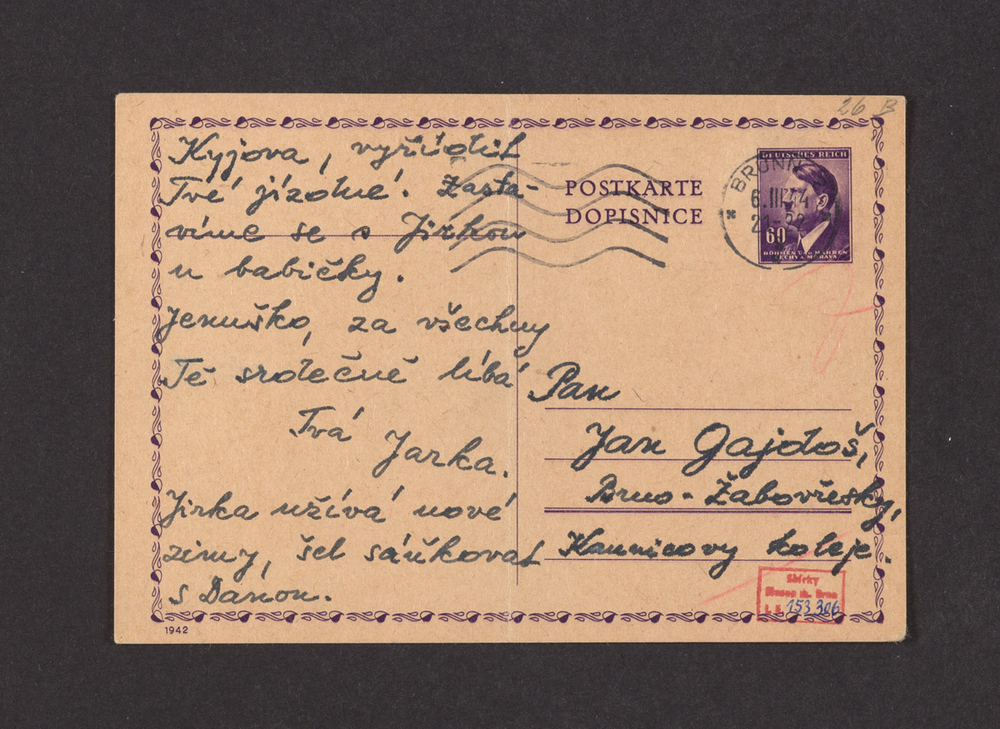 26 B
Kyjova, vyřídil
Tvé jízdné. Zasta-
víme se s Jirkou
u babičky.
Jenuško, za všechny
Tě srdečně líbá
Tvá
Jarka.
Jirka užívá nové
zimy, šel sáňkovat
s Danou.
1942
POSTKARTE
DOPISNICE
DEUTSCHES REICH
60
BÖHMEN UND MÄHREN
ČECHY A MORAVA
BRÜNN
6.III.44
21-22
Pan
Jan Gajdoš,
Brno-Žabovřesky,
Kaunicovy koleje.
Sbírky
Musea m. Brna
153 306